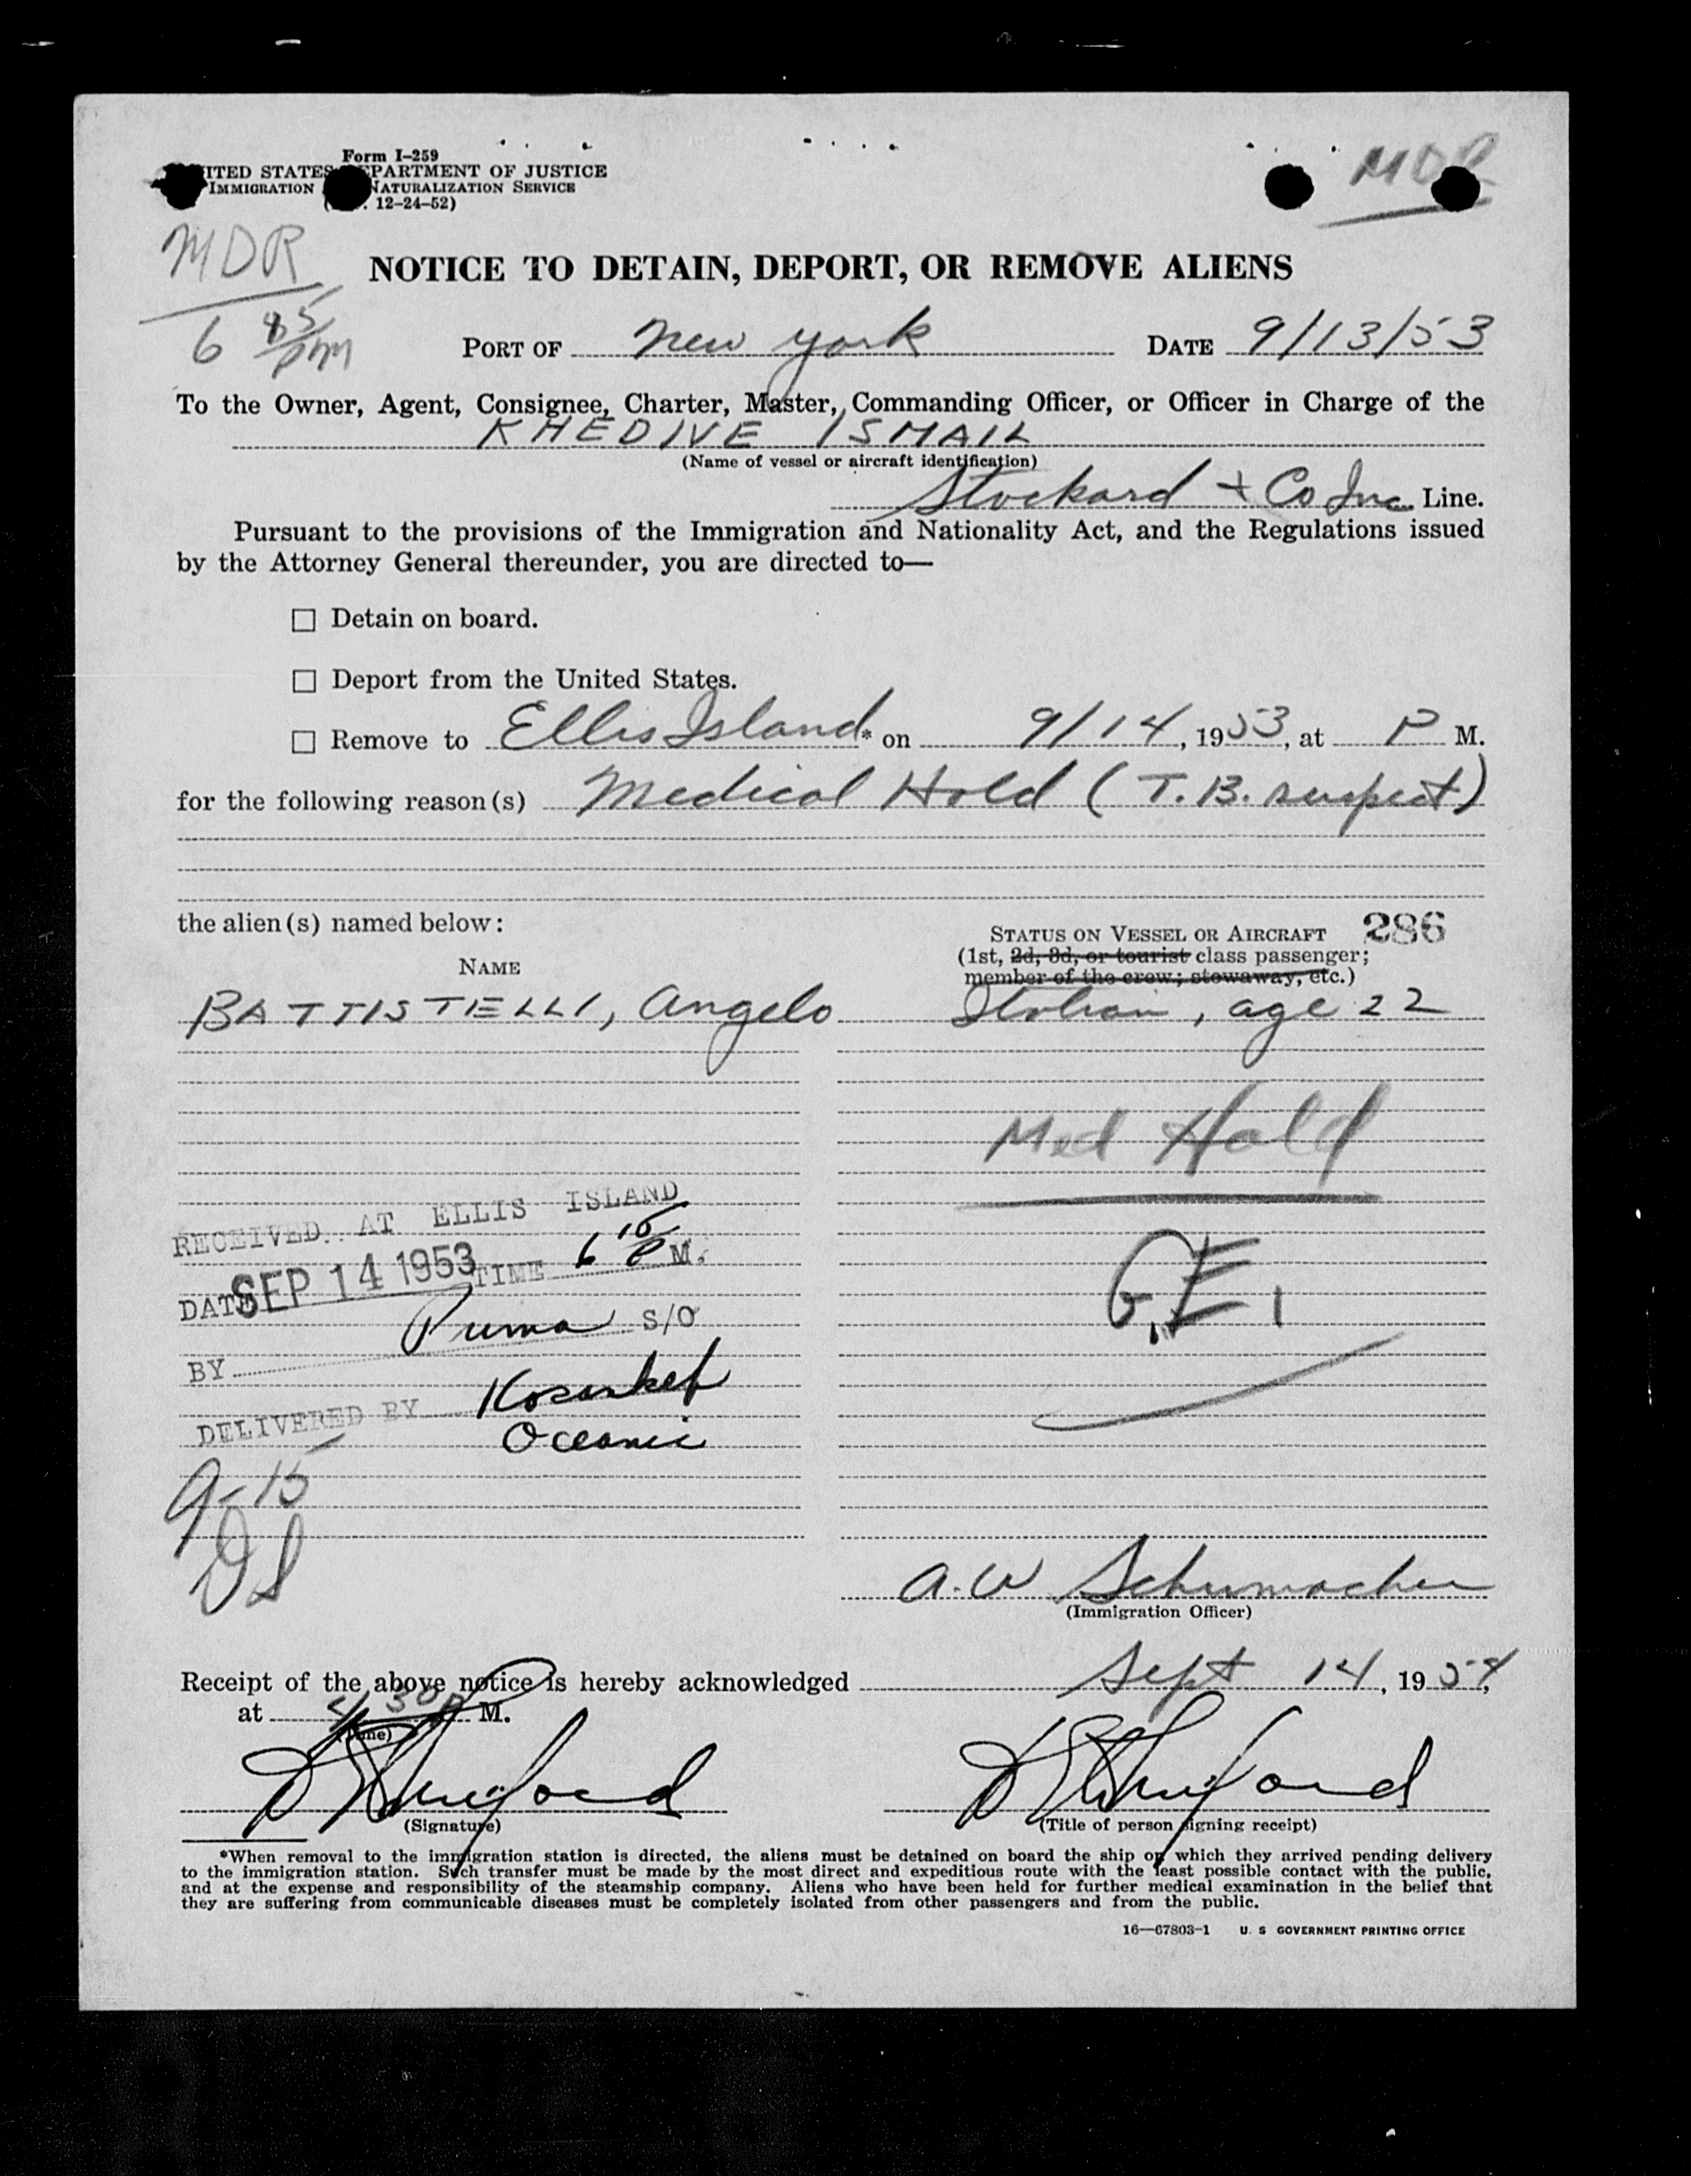 Form I-259
UNITED STATES DEPARTMENT OF JUSTICE
IMMIGRATION NATURALIZATION SERVICE
12-24-52)
MDR
MDR
6 45 pm
NOTICE TO DETAIN, DEPORT, OR REMOVE ALIENS
PORT OF New York DATE 9/13/53
To the Owner, Agent, Consignee, Charter, Master, Commanding Officer, or Officer in Charge of the
KHEDIVE ISMAIL
(Name of vessel or aircraft identification)
Stockard + Co Inc. Line.
Pursuant to the provisions of the Immigration and Nationality Act, and the Regulations issued
by the Attorney General thereunder, you are directed to—
☐ Detain on board.
☐ Deport from the United States.
☐ Remove to Ellis Island* on 9/14, 1953, at P M.
for the following reason(s) Medical Hold (T.B. suspect)
the alien(s) named below:
STATUS ON VESSEL OR AIRCRAFT 286
NAME
(1st, 2d, 3d, or tourist class passenger;
member of the crew; stowaway, etc.)
BATTISTELLI, Angelo Italian, age 22
Med Hold
RECEIVED AT ELLIS ISLAND
DATE SEP 14 1953 TIME 6 10 P M.
G.E,
BY Puma S/O
DELIVERED BY
Oceanic
9-15
DS
A.W Schumacher
(Immigration Officer)
Receipt of the above notice is hereby acknowledged Sept 14, 1954,
at 4 30 P M.
(Time)
(Signature)
(Title of person signing receipt)
*When removal to the immigration station is directed, the aliens must be detained on board the ship on which they arrived pending delivery
to the immigration station. Such transfer must be made by the most direct and expeditious route with the least possible contact with the public,
and at the expense and responsibility of the steamship company. Aliens who have been held for further medical examination in the belief that
they are suffering from communicable diseases must be completely isolated from other passengers and from the public.
16—67803-1 U. S GOVERNMENT PRINTING OFFICE